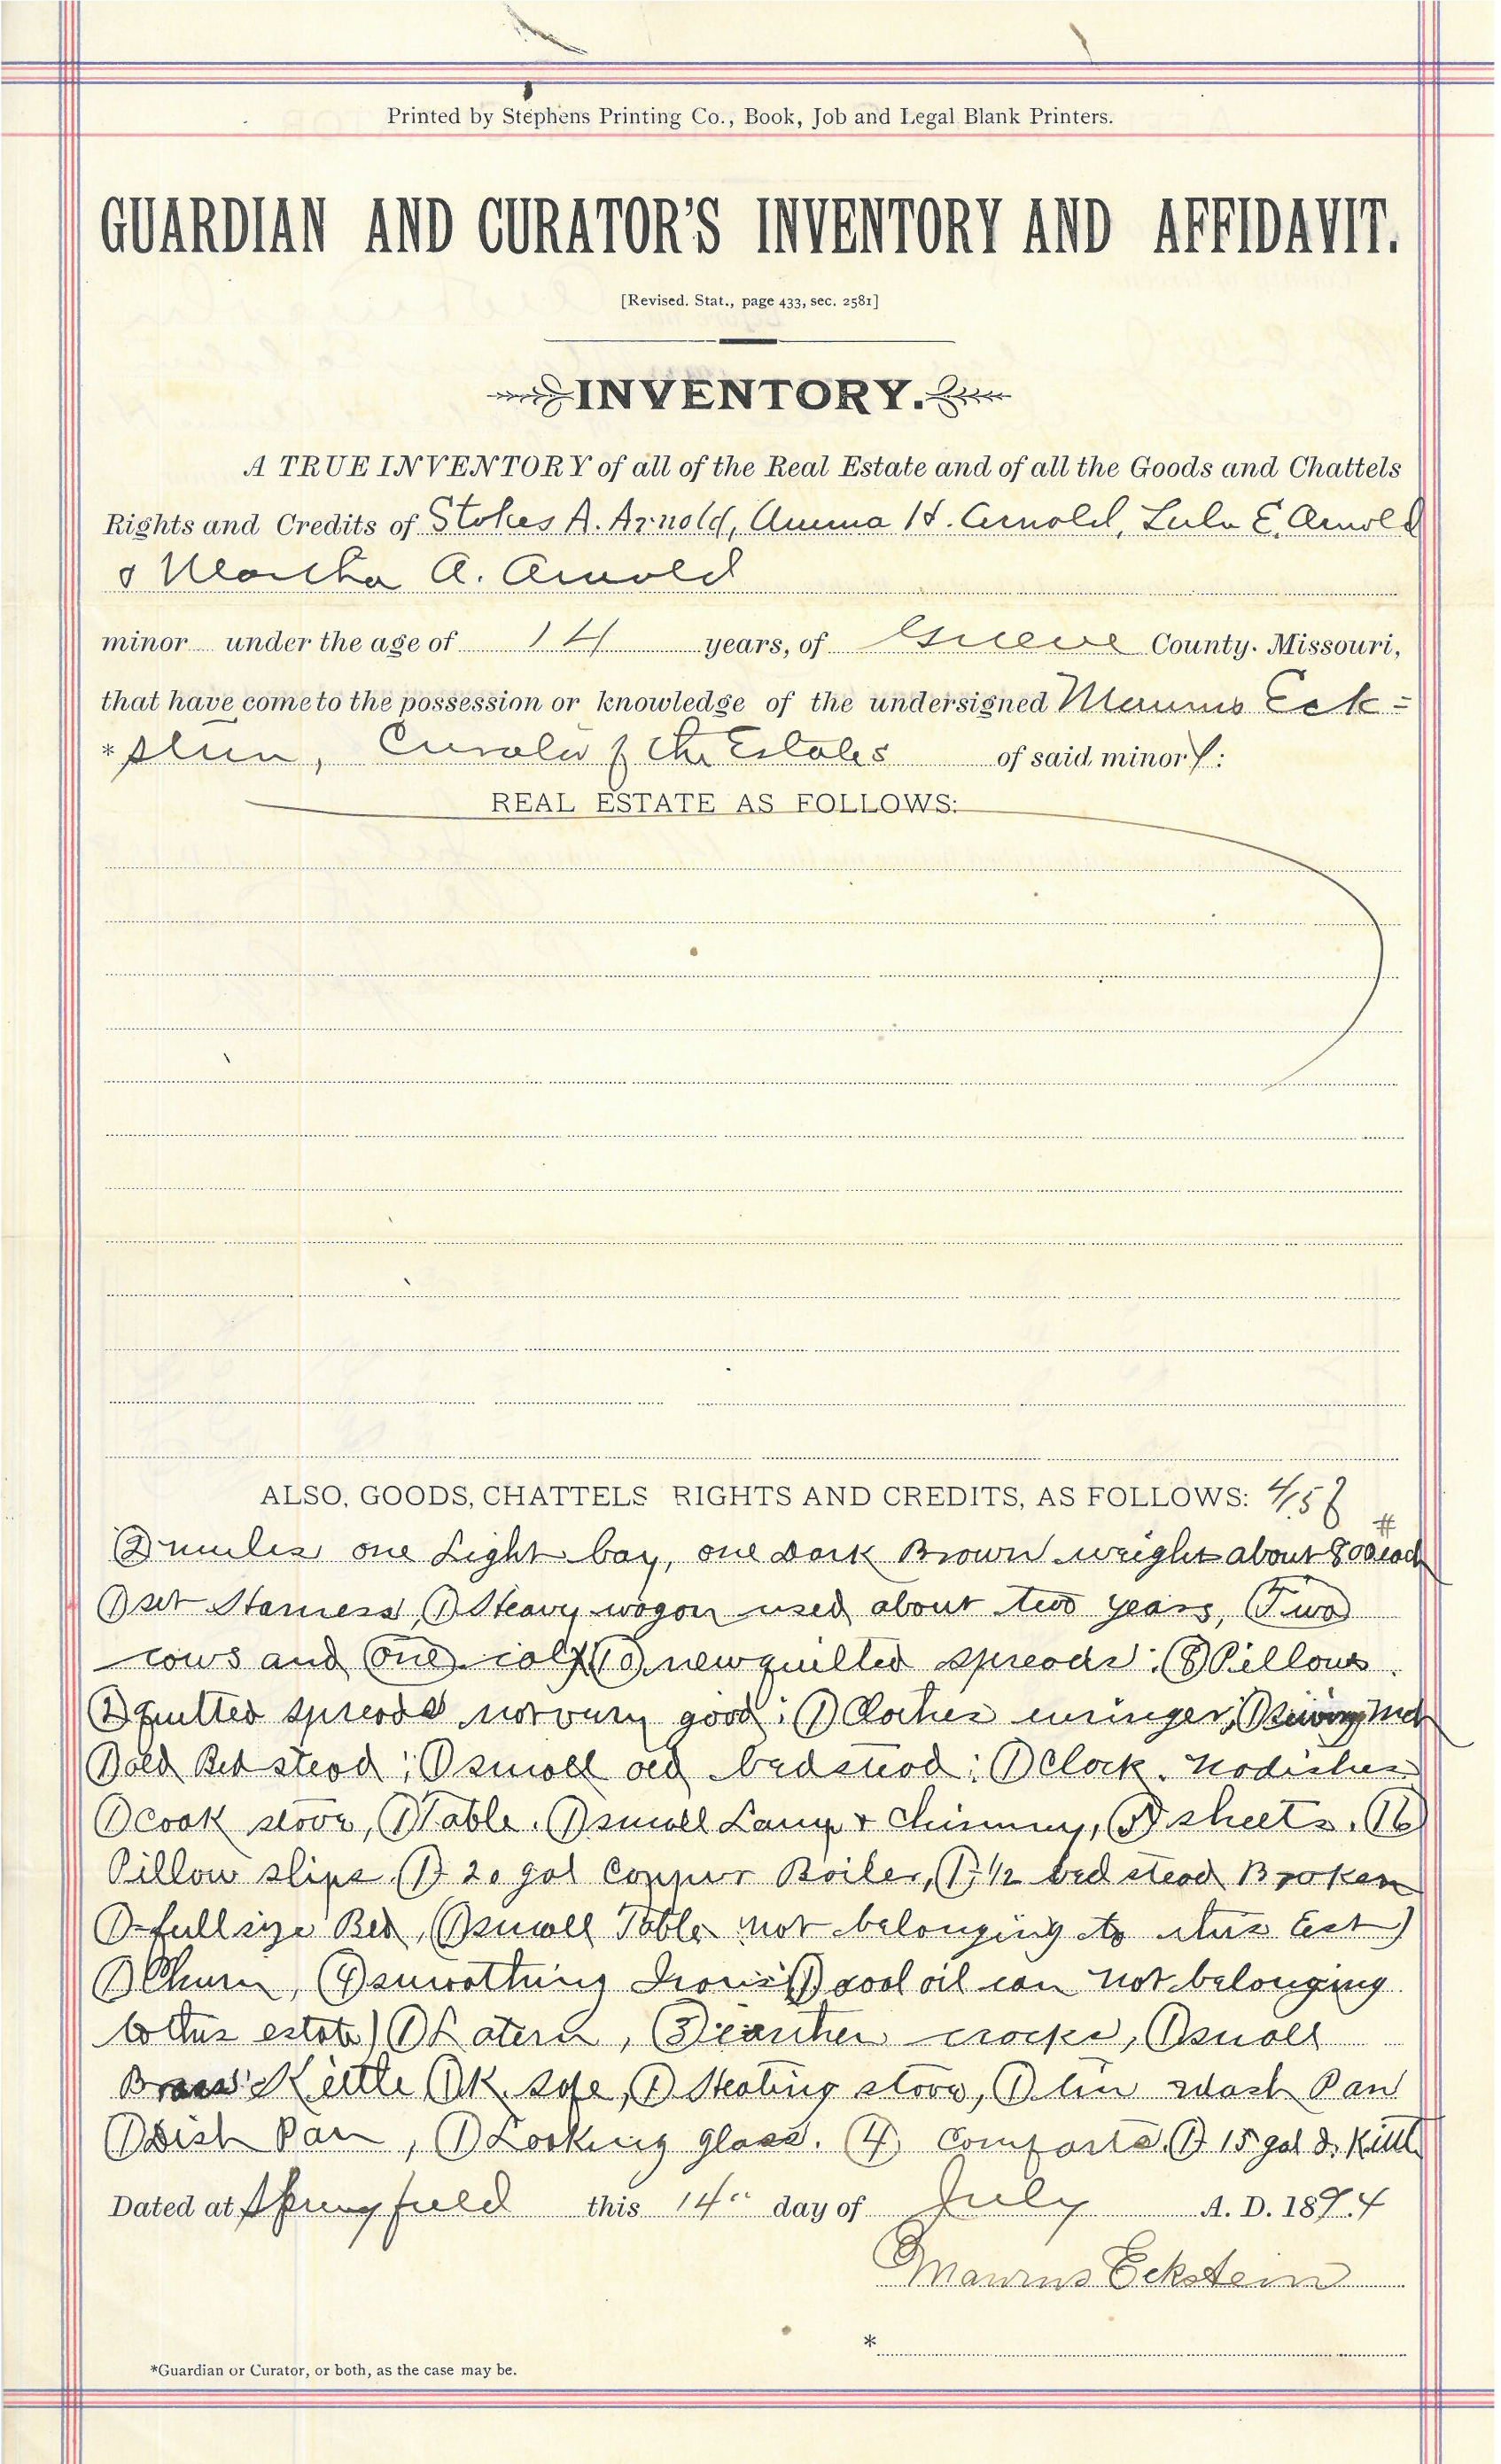 Printed by Stephens Printing Co., Book, Job and Legal Blank Printers.
GUARDIAN AND CURATOR'S INVENTORY AND AFFIDAVIT.
[Revised. Stat., page 433, sec. 2581]
INVENTORY.
A TRUE INVENTORY of all of the Real Estate and of all the Goods and Chattels
Rights and Credits of Stokes A. Arnold, Anna H. Arnold, Lula E. Arnold
& Martha A. Arnold
minor under the age of 14 years, of Greene County. Missouri,
that have come to the possession or knowledge of the undersigned Maurus Eck=
*stein, Curator of the Estates of said minors:
REAL ESTATE AS FOLLOWS:
ALSO, GOODS, CHATTELS RIGHTS AND CREDITS, AS FOLLOWS:
(2) mules one Light bay, one dark Brown weight about 800# each
(1) set Harness, (1) Heavy wagon used about two years, (Two)
cows and (one) calf (10) new quilted spreads; (8) Pillows.
(2) quilted spreads not very good; (1) Clothes wringer, (1) Sewing Mch
(1) old Bed stead; (1) small old bedstead; (1) Clock. No dishes
(1) cook stove, (1) Table. (1) small Lamp & Chimney, sheets. (16)
Pillow slips (1) 20 gal Copper Boiler, (1) 1/2 bed stead Broken
(1) full size Bed, (1) small Table not belonging to this Est)
(1) Churn, (4) smoothing Irons (1) cool oil can not belonging
to this estate) (1) Latern, (3) earthen crocks, (1) small
Brass Kettle (1) K. safe, (1) Heating stove, (1) tin wash Pan
(1) Dish Pan, (1) Looking glass. (4) Comforts. (1) 15 gal Kittl
Dated at Springfield this 14" day of July A. D. 1894
Maurus Eckstein
*
*Guardian or Curator, or both, as the case may be.